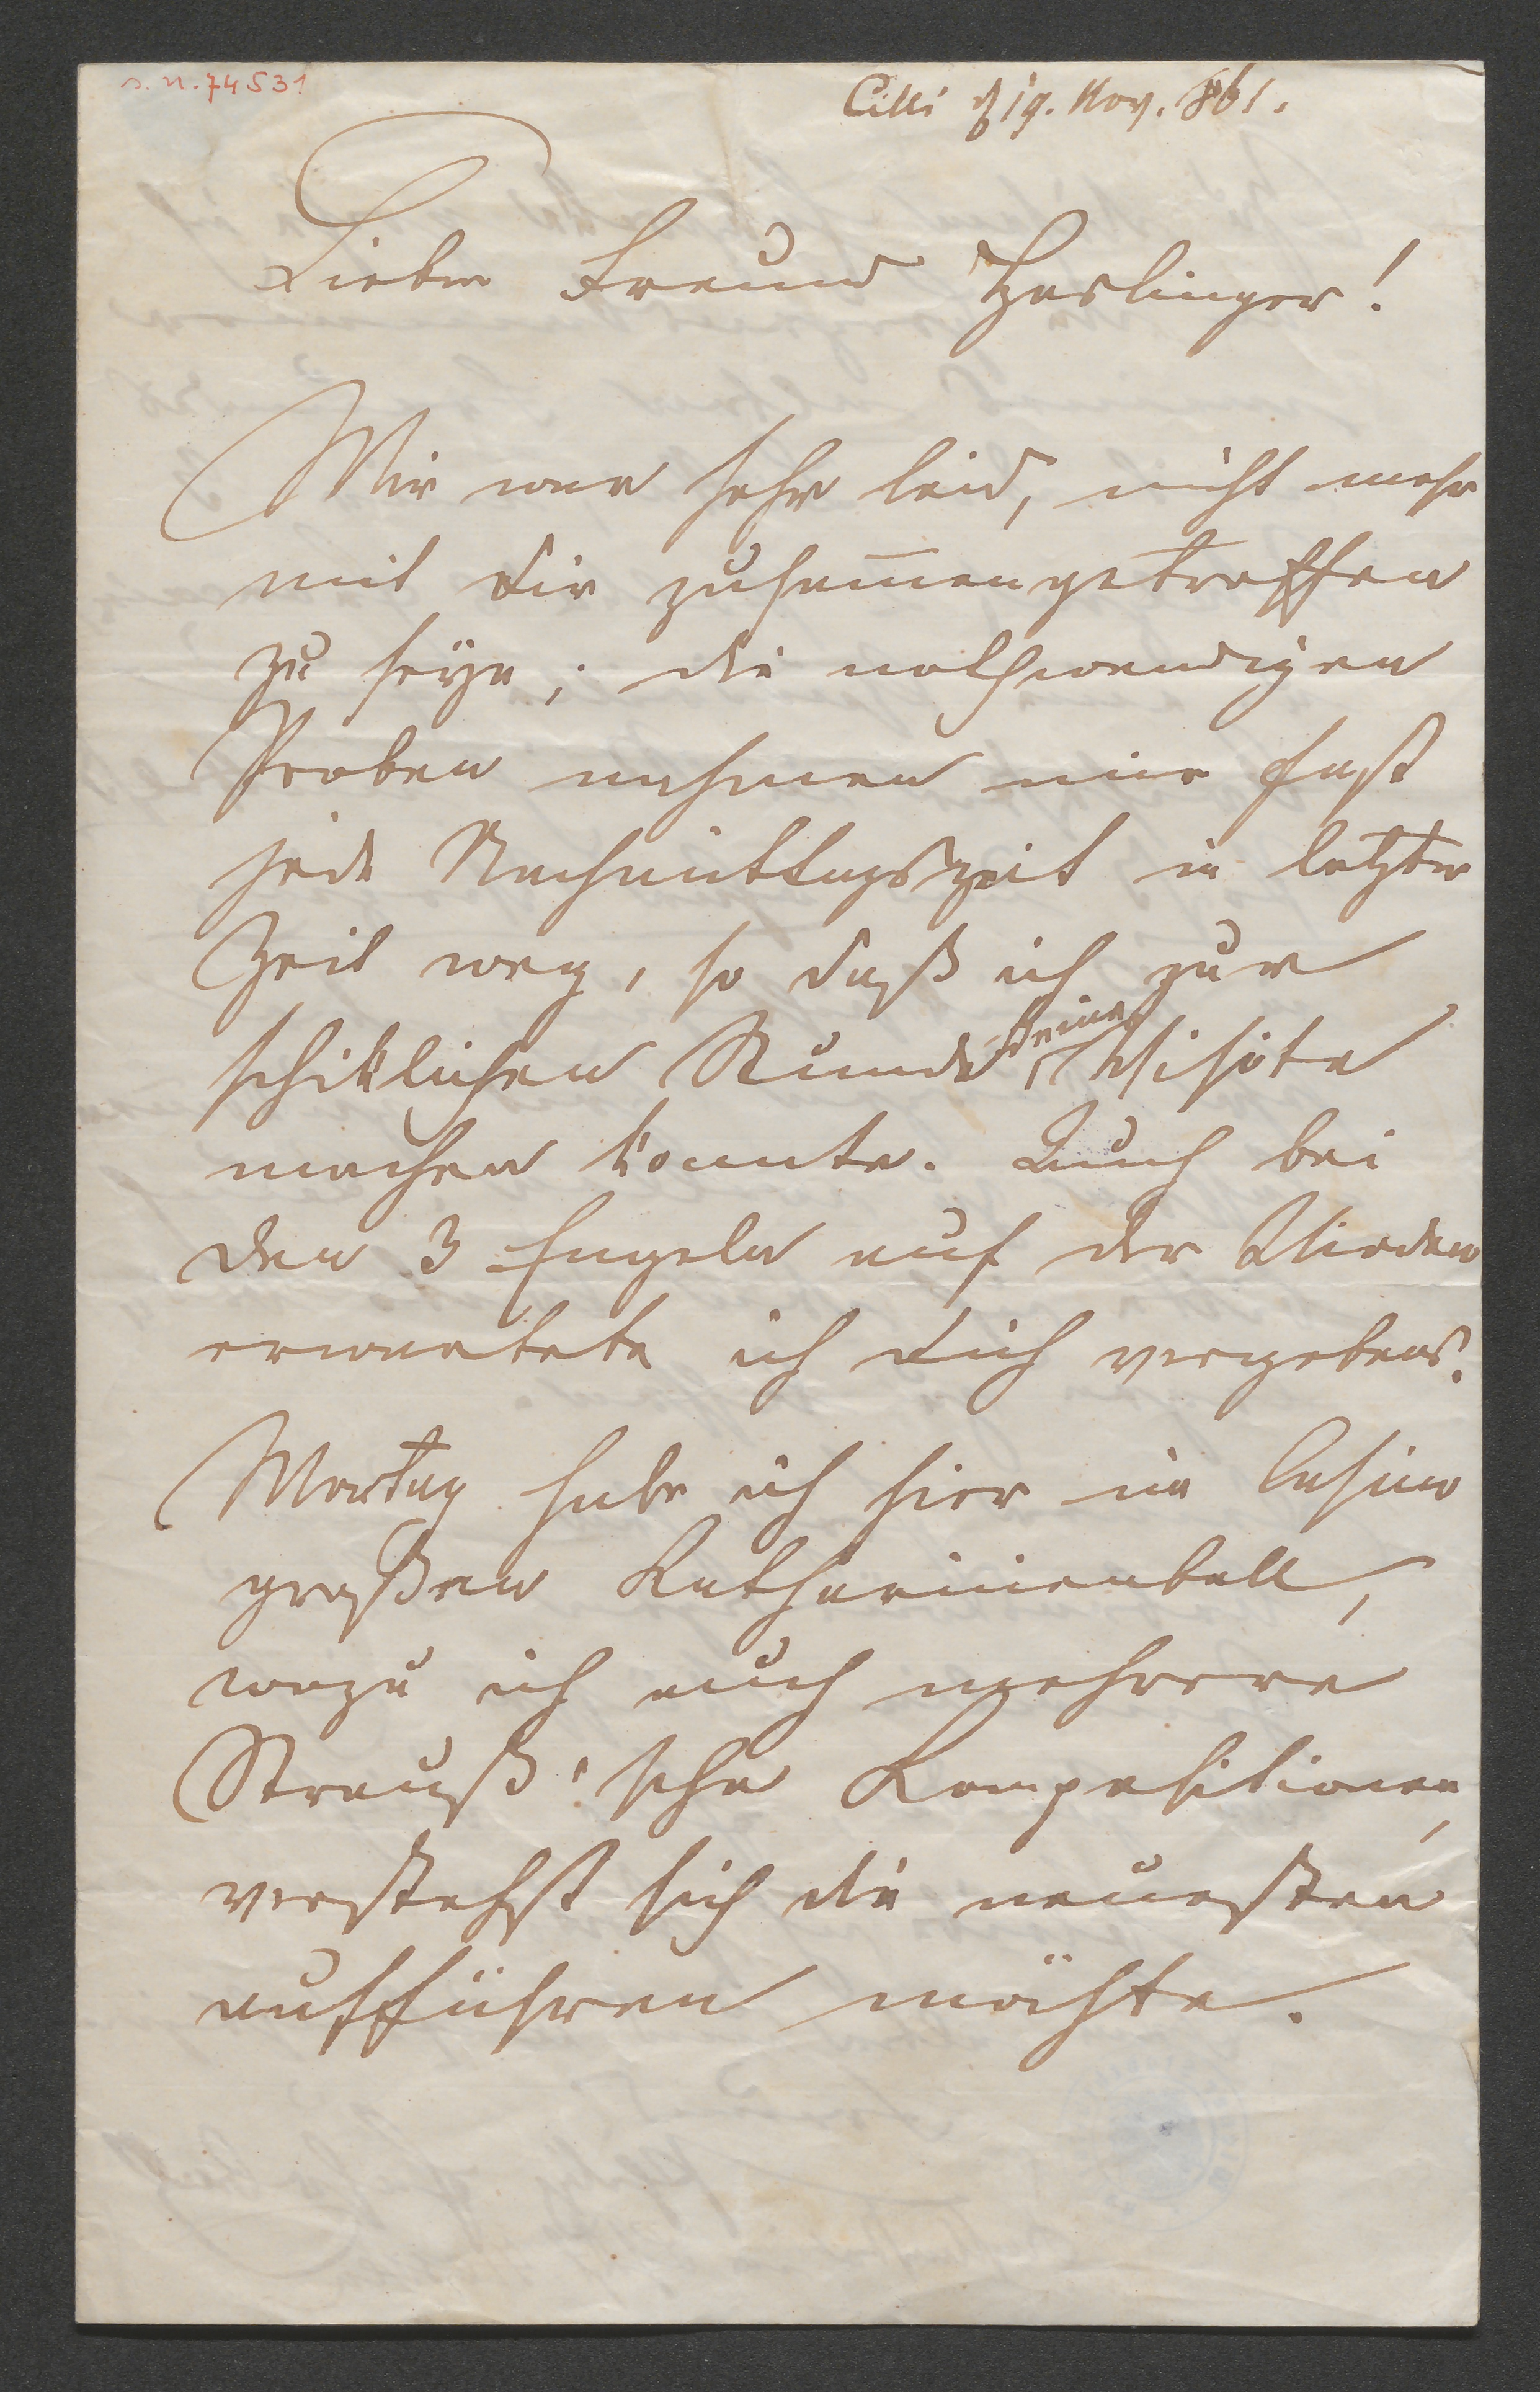 s. n. 74531
Cilli d 19. Nov. 861.
Lieber Freund Haslinger!
Mir war sehr leid, nicht mehr
mit dir zusam̅engetroffen
zu seÿn; die nothwendigen
Proben nahmen mir fast
jede Nachmittagszeit in letzter
Zeit weg, so daß ich zur
schiklichen Stunde keine Visite
machen konnte. Auch bei
den 3 Engeln auf der Wieden
erwartete ich dich vergebens.
Montag habe ich hier im Casino
großen Katharinenball,
wozu ich auch mehrere
Strauß'sche Kompositionen,
verstehst sich die neuesten
aufführen möchte.